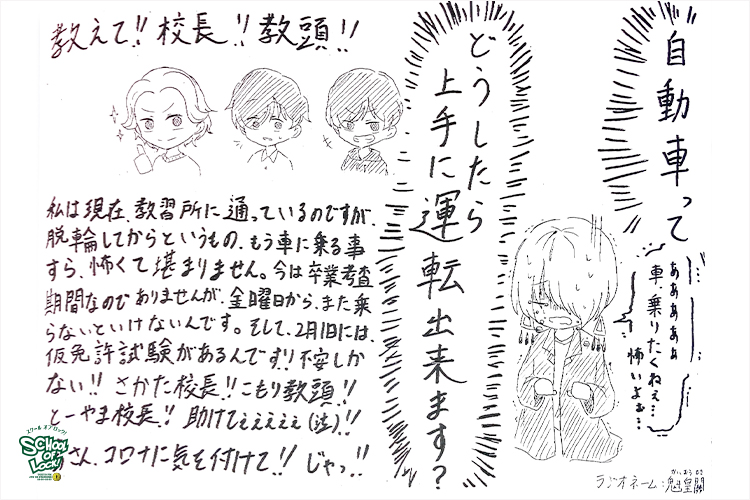 教えて!! 校長!! 教頭!!
自動車って
どうしたら
上手に運転出来ます?
私は現在、教習所に通っているのですが、
脱輪してからというもの、もう車に乗る事
すら、怖くて堪まりません。今は卒業考査
期間なのでありませんが、金曜日から、また乗
らないといけないんです。そして、2月1日には、
仮免許試験があるんです!! 不安しか
ない!! さかた校長!! こもり教頭!!
とーやま校長!! 助けてぇぇぇぇぇ(泣)!!
さん、コロナに気を付けて!! じゃっ!!
ぁぁぁぁぁぁ
車、乗りたくねぇ…
怖いよぉ…
ラジオネーム:魁皇閣
スクール オブ ロック!
SCHOOL OF LOCK!